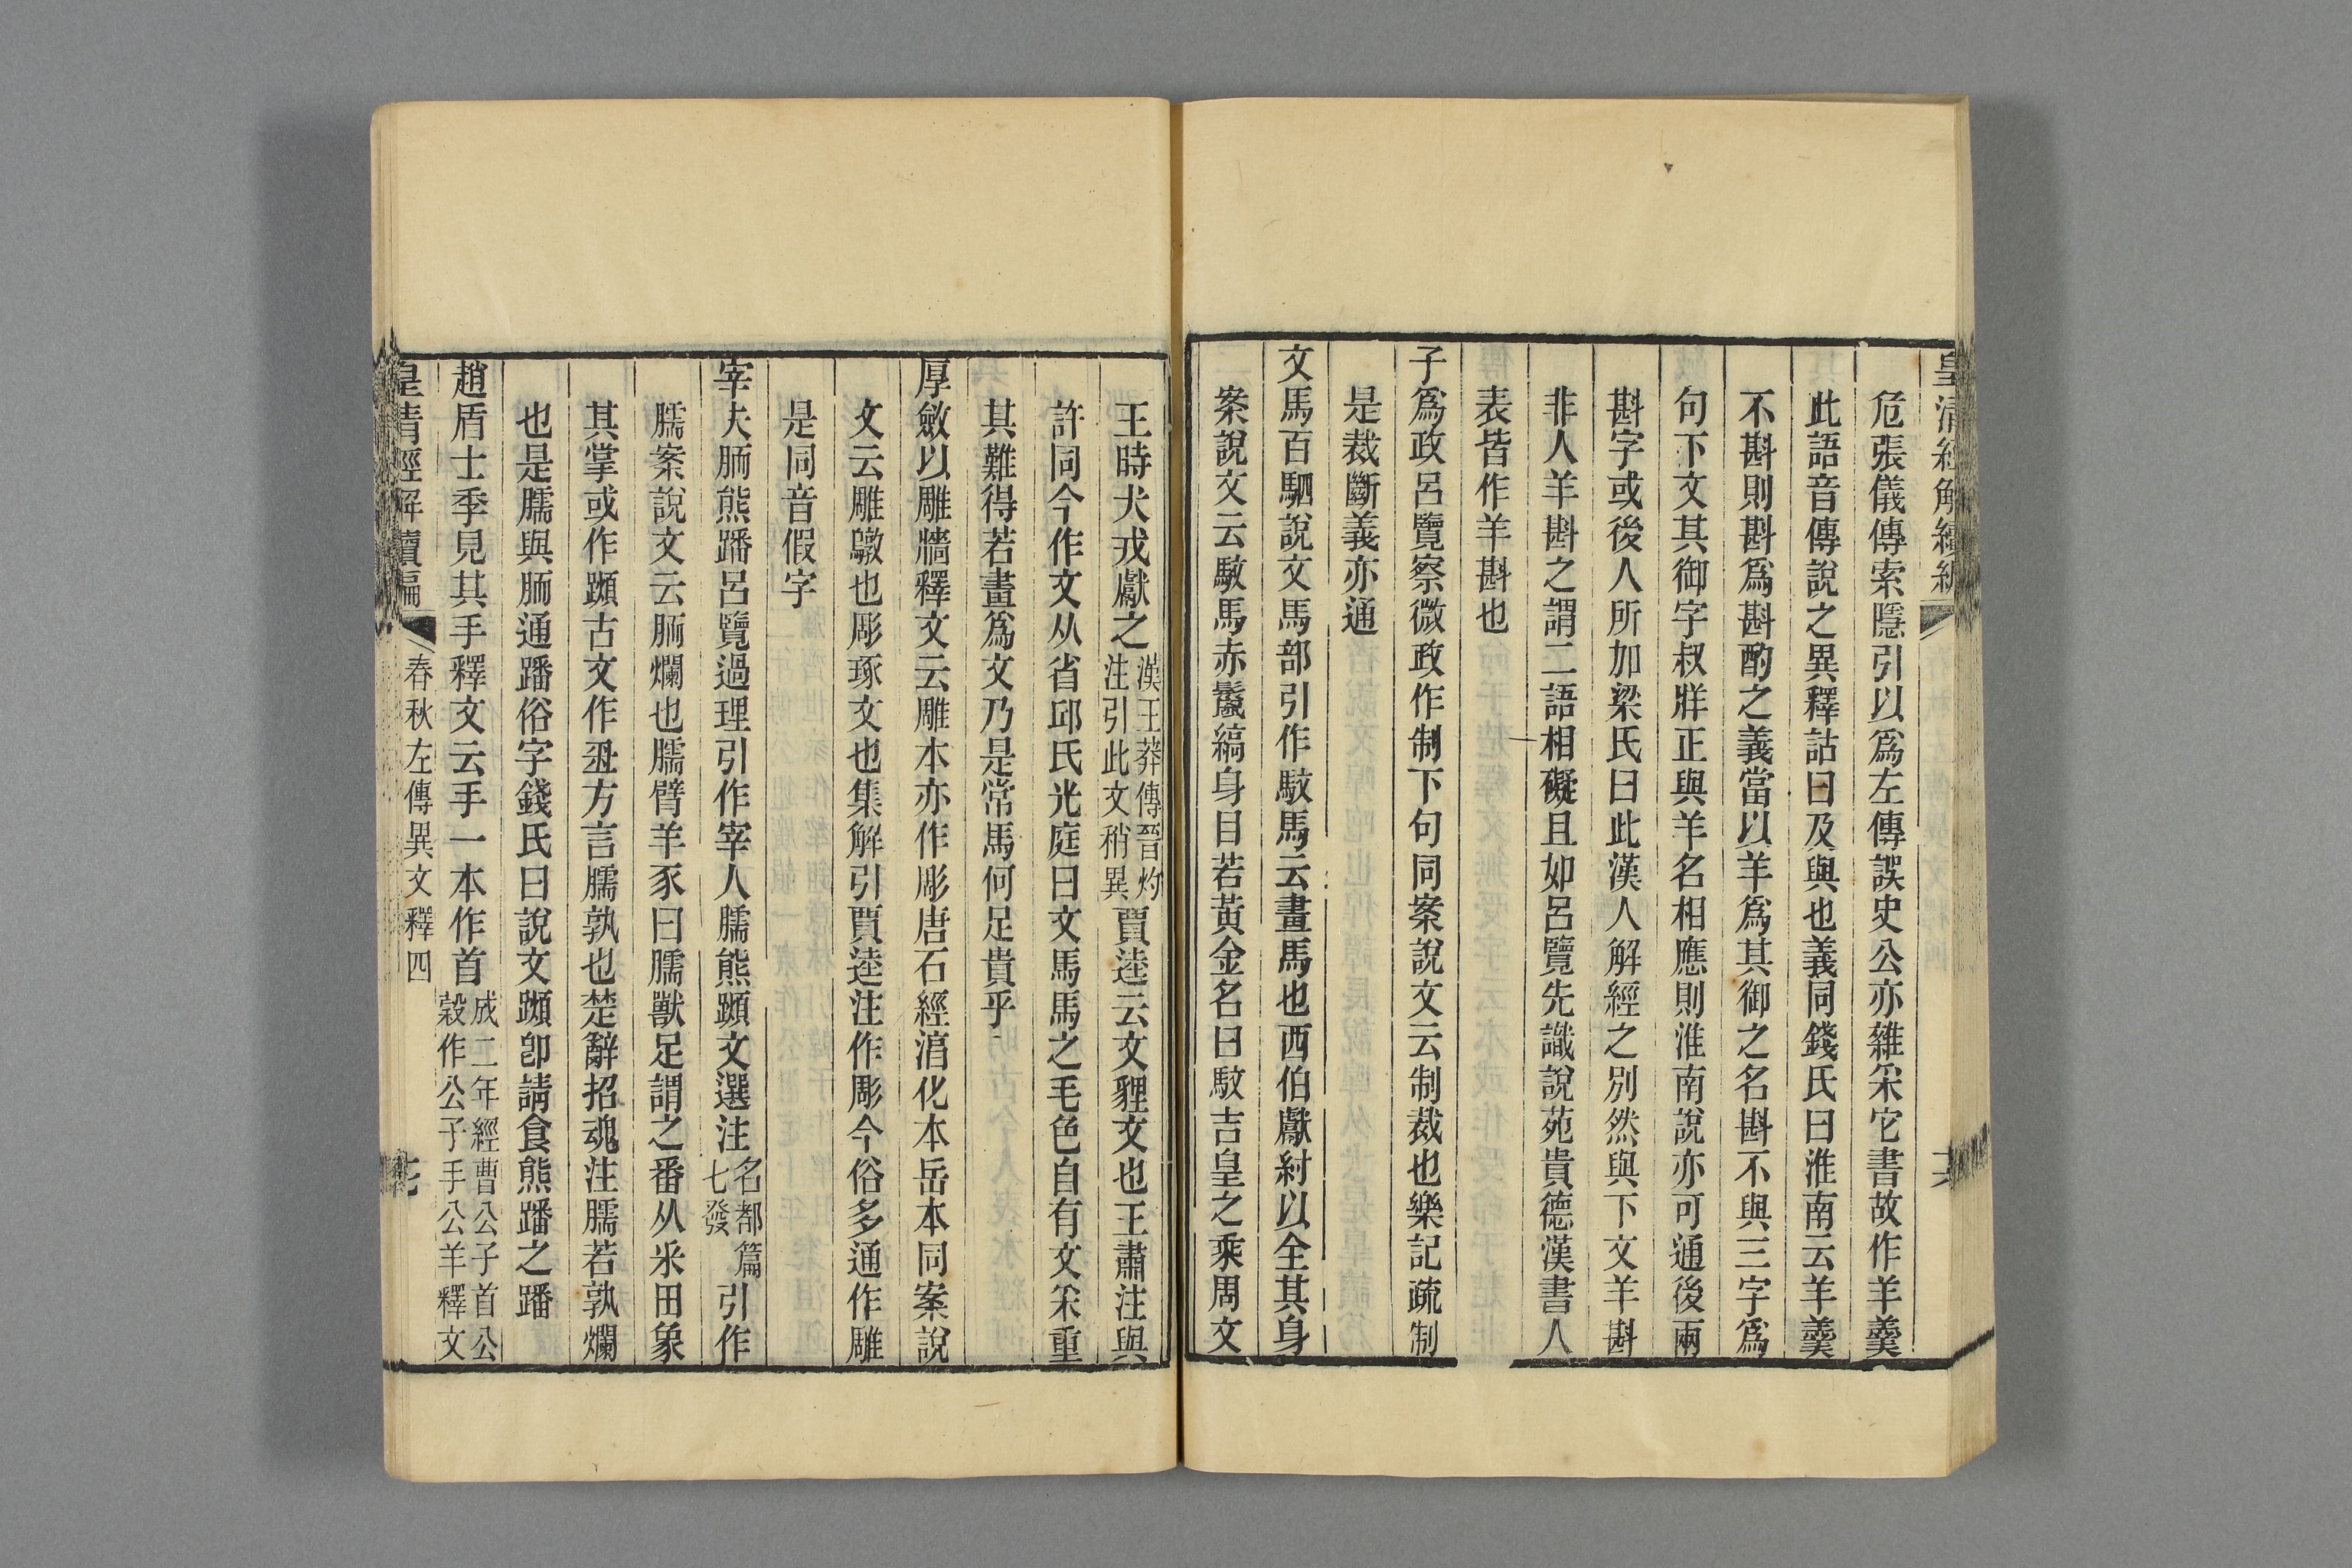 皇清經解續編
危張儀傳索隱引以爲左傳誤史公亦雜采它書故作羊羹
此語音傳說之異釋詁曰及與也義同錢氏曰淮南云羊羹
不斟則斟爲斟酌之義當以羊爲其御之名斟不與三字爲
句下文其御字叔牂正與羊名相應則淮南說亦可通後兩
斟字或後人所加梁氏曰此漢人解經之別然與下文羊斟
非人羊斟之謂二語相礙且如呂覽先識說苑貴德漢書人
表皆作羊斟也
子爲政呂覽察微政作制下句同案說文云制裁也樂記疏制
是裁斷義亦通
文馬百駟說文馬部引作駇馬云畫馬也西伯獻紂以全其身
案說文云駇馬赤鬛縞身目若黃金名曰駇吉皇之乘周文
王時犬戎獻之漢王莽傳晉灼注引此文稍異賈逵云文貍文也王肅注與
許同今作文从省邱氏光庭曰文馬馬之毛色自有文采重
其難得若畫爲文乃是常馬何足貴乎
厚斂以雕牆釋文云雕本亦作彫唐石經湻化本岳本同案說
文云雕鷻也彫琢文也集解引賈逵注作彫今俗多通作雕
是同音假字
宰夫胹熊蹯呂覽過理引作宰人臑熊蹞文選注名都篇七發引作
臑案說文云胹爛也臑臂羊豕曰臑獸足謂之番从釆田象
其掌或作蹞古文作𠬤方言臑孰也楚辭招魂注臑若孰爛
也是臑與胹通蹯俗字錢氏曰說文蹞卽請食熊蹯之蹯
趙盾士季見其手釋文云手一本作首成二年經曹公子首公穀作公子手公羊釋文
皇清經解續編 春秋左傳異文釋四